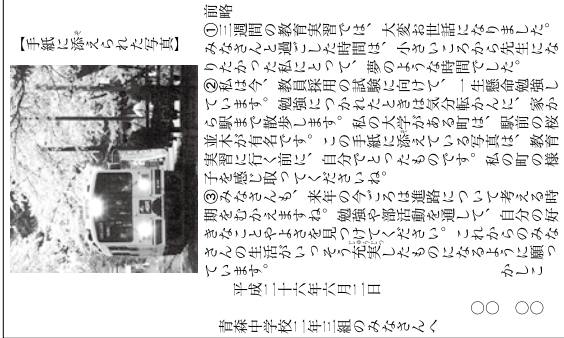 前略
①三週間の教育実習では、大変お世話になりました。
みなさんと過ごした時間は、小さいころから先生にな
りたかった私にとって、夢のような時間でした。
②私は今、教員採用の試験に向けて、一生懸命勉強し
ています。勉強につかれたときは気分転かんに、家か
ら駅まで散歩します。私の大学がある町は、駅前の桜
並木が有名です。この手紙に添えている写真は、教育
実習に行く前に、自分でとったものです。私の町の様
子を感じ取ってくださいね。
③みなさんも、来年の今ごろは進路について考える時
期をむかえますね。勉強や部活動を通して、自分の好
きなことやよさを見つけてください。これからのみな
さんの生活がいっそう充実したものになるように願っ
ています。　かしこ
平成二十六年六月二日
○○　○○
青森中学校二年三組のみなさんへ
【手紙に添えられた写真】